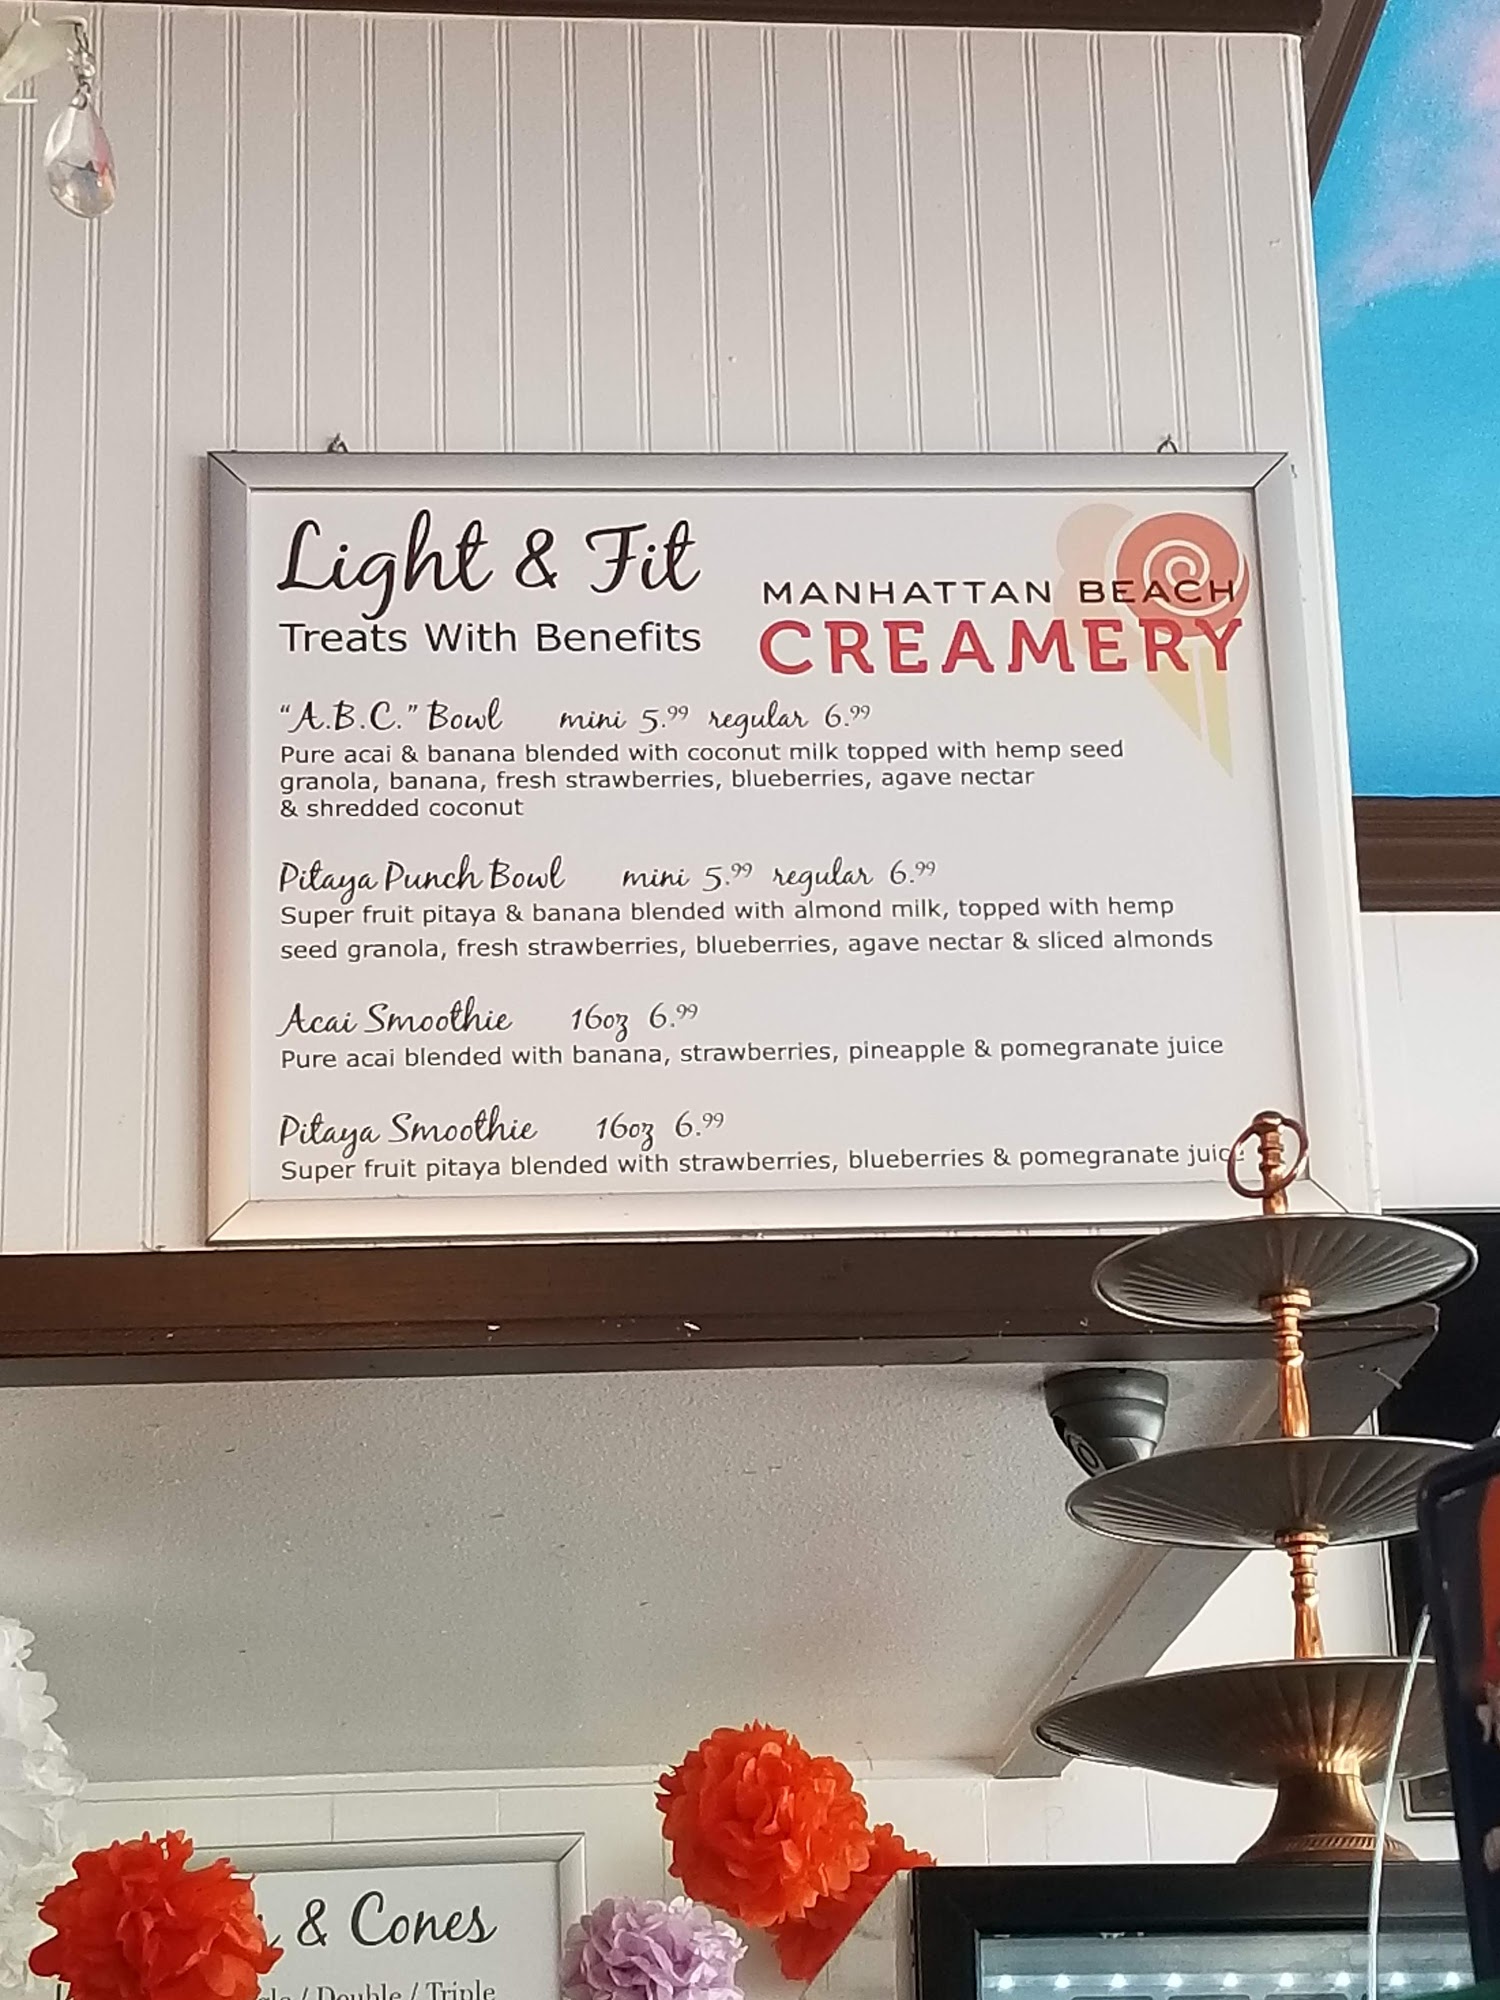 Light & Fit
Treats With Benefits
MANHATTAN BEACH
CREAMERY
"A.B.C." Bowl mini 5.99 regular 6.99
Pure acai & banana blended with coconut milk topped with hemp seed
granola, banana, fresh strawberries, blueberries, agave nectar
& shredded coconut
Pitaya Punch Bowl mini 5.99 regular 6.99
Super fruit pitaya & banana blended with almond milk, topped with hemp
seed granola, fresh strawberries, blueberries, agave nectar & sliced almonds
Acai Smoothie 16oz 6.99
Pure acai blended with banana, strawberries, pineapple & pomegranate juice
Pitaya Smoothie 16oz 6.99
Super fruit pitaya blended with strawberries, blueberries & pomegranate juice
& Cones
/ Double / Triple